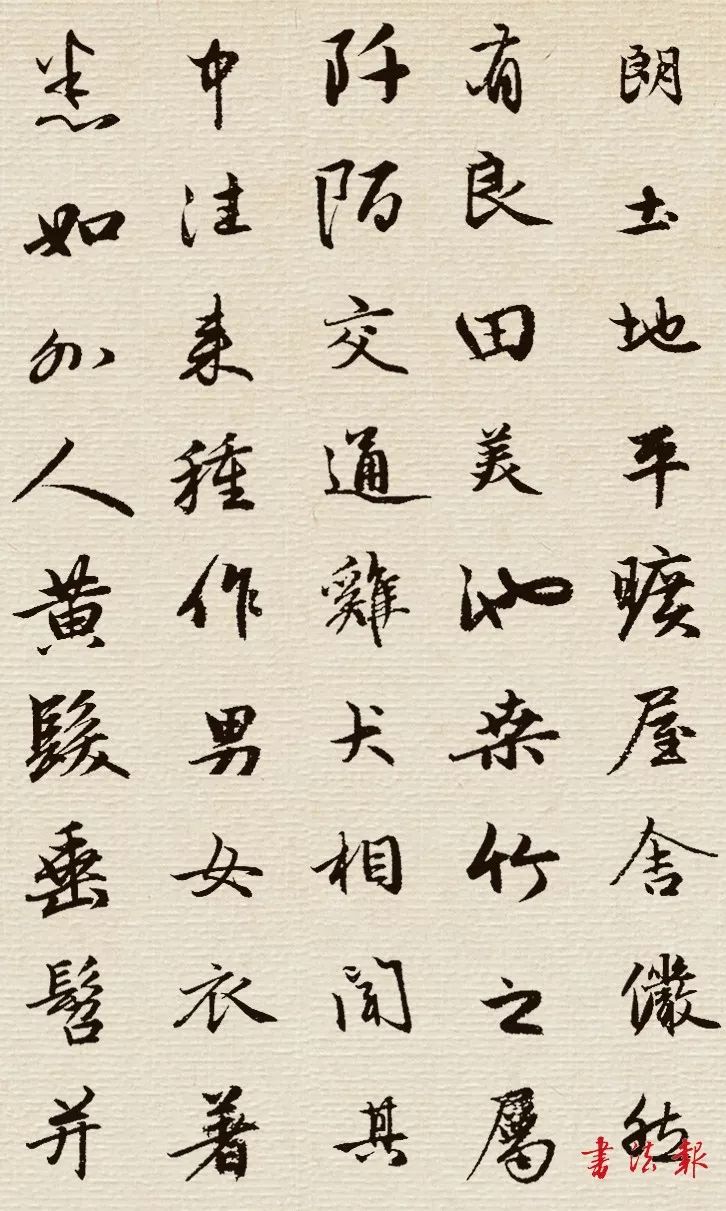 朗土地平曠屋舍儼然
有良田美池桑竹之屬
阡陌交通雞犬相聞其
中往来種作男女衣著
悉如外人黄髮垂髫并
書法報